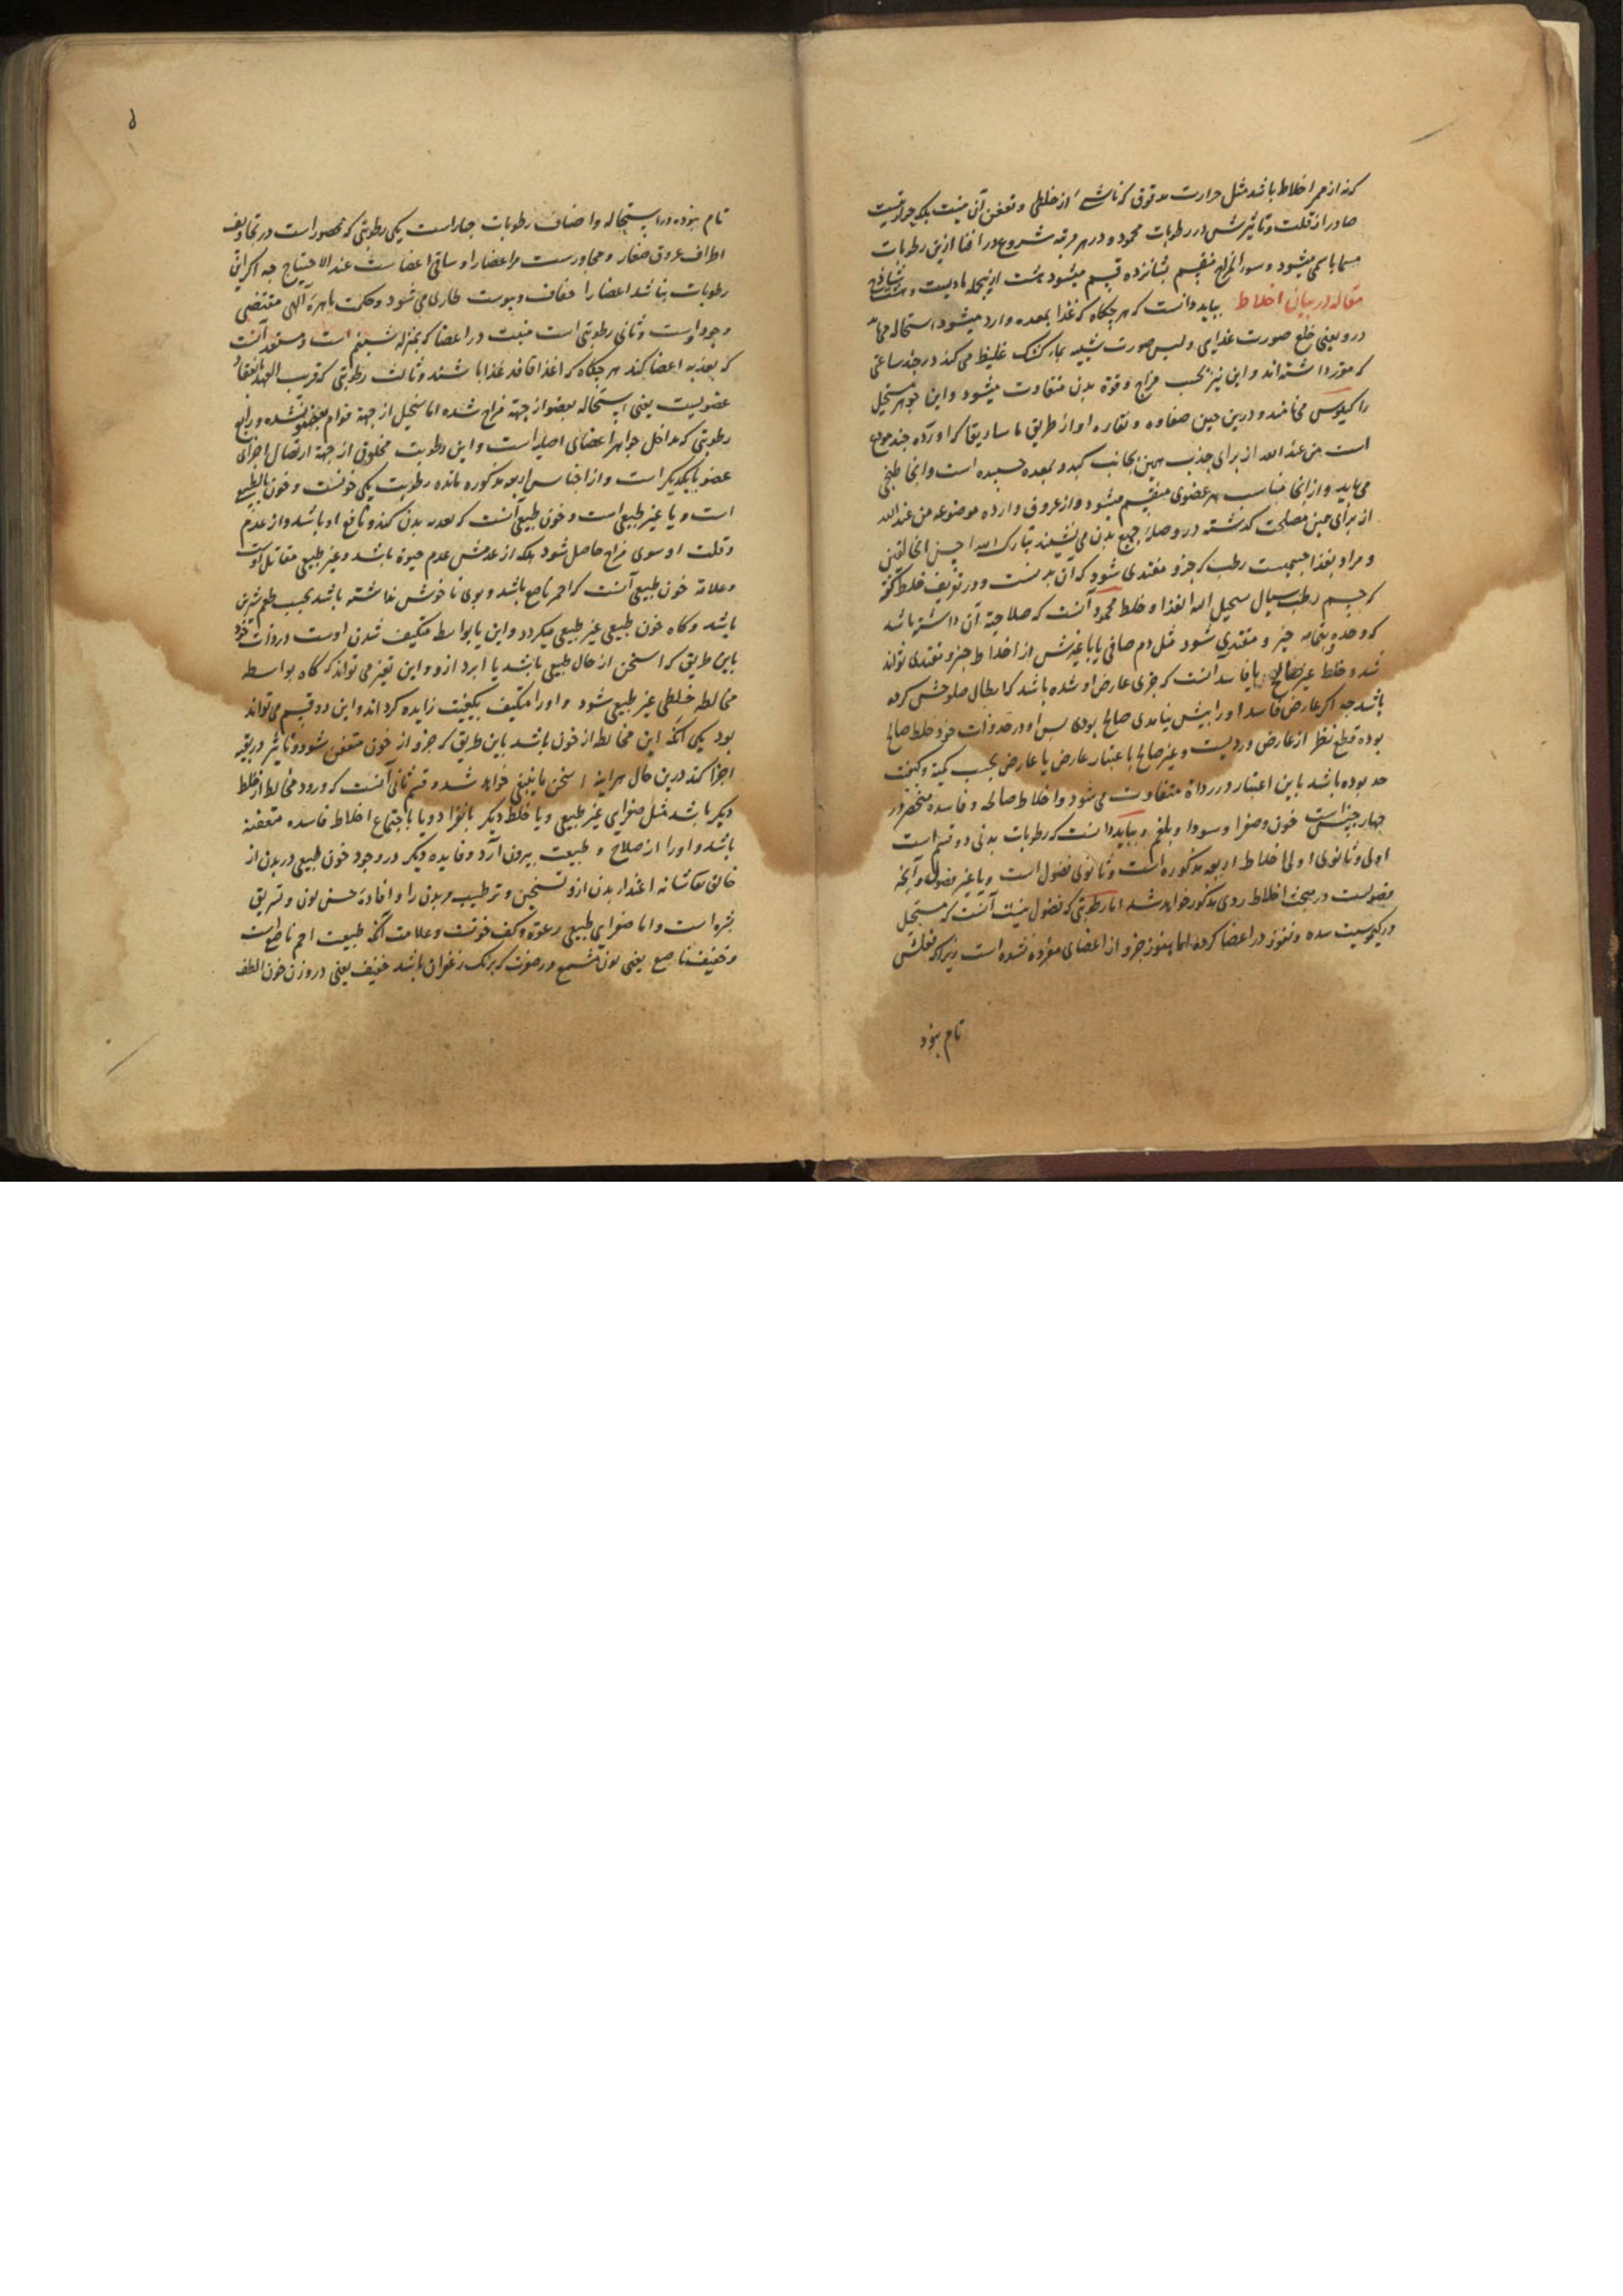 که نه از ممر اخلاط باشد مثل حرارت مدقوق که ناشی از خلطی و تعفن آن نیست بلکه حرارتیست
صادر از قلت و تاثیرش در رطوبات محمود و در هر مرتبه شروع در افنا ازین رطوبات
مسما باسمی میشود و سوء المزاج منقسم بشانزده قسم میشود هشت ازینجمله مادیست و هشت ساذج
مقاله در بیان اخلاط بباید دانست که هر چکاه که غذا بمعده وارد میشود استحاله
درو یعنی خلع صورت غذایی و لبس صورت شبیه بماء کشک غلیظ می کند در چند ساعتی
که مقرر داشته اند و این نیز بحسب مزاج و قوة بدن متفاوت میشود و این جوهر مستحیل
را کیلوس می نامند و درین حین صفاوه و نقاره او از طریق ماساریقا که اورده چند موضوع
است من عند الله از برای جذب همین بجانب کبد و بمعده چسبیده است و انجا طبخی
می یابد و از انجا مناسب هر عضوی منقسم میشود و از عروق و ارده موضوعه من عند الله
از برای همین مصلحت گذشته در وصلهٔ جمیع بدن می نشیند تبارک الله احسن الخالقین
و مراد بغذا جسمیست رطب که جزو مغتذی شود که آن بدنست و در تعریف خلط گفته
که جسم رطب سیال یستحیل الیه الغذا و خلط محمود آنست که صلاحیة آن داشته باشد
که وحده بتمامه جزو مغتذی شود مثل دم صافی یا با غیرش از اخلاط جزو مغتذی تواند
شد و خلط غیر صالح یا فاسد آنست که جزی عارض او شده باشد که ابطال صلوحش کرده
باشد چه اگر عارض فاسد او را پیش نیامدی صالح بودی پس او در حد ذات خود خلط صالح
بوده قطع نظر از عارض وردیست و غیر صالح باعتبار عارض یا عارض بحسب کمیة و کیفیت
حد بوده باشد باین اعتبار در رداة متفاوت می شود و اخلاط صالحه و فاسده منحصر در
چهار چیز است خون و صفرا و سودا و بلغم و بباید دانست که رطوبات بدنی دو قسم است
اولی و ثانوی اولی اخلاط اربعه مذکوره است و ثانوی فضول است و یا غیر فضول و آنچه
فضولست در مبحث اخلاط ردی مذکور خواهد شد اما رطوبتی که فضول نیست آنست که مستحیل
در کیموسیت شده و نفوذ در اعضا کرده اما هنوز جزو از اعضای مفرده نشده است زیرا که فعلش
تام نبود
تام نبوده در استحاله و اصناف رطوبات چهار است یکی رطوبتی که محصور است در تجاویف
اطراف عروق صغار و مجاورست مر اعضا را و ساقی اعضاست عند الاحتیاج چه اگر این
رطوبات نباشد اعضا را جفاف و یبوست طاری می شود و حکمت باهرهٔ الهی مقتضی
وجود اوست و ثانی رطوبتی است منبت در اعضا که بمنزله شبنم است و مستعد آنست
که تغذیه اعضا کند هر چکاه که اعضا فاقد غذا باشند و ثالث رطوبتی که قریب العهد بانعقاد
عضویست یعنی استحاله بعضو از جهة مزاج شده اما مستحیل از جهة قوام بعضو نشده و رابع
رطوبتی که مداخل جواهر اعضای اصلیه است و این رطوبت مخلوق از جهة اتصال اجزای
عضو بایکدیگر است و از اجناس اربعه مذکوره مانده رطوبت یکی خونست و خون یا طبیعی
است و یا غیر طبیعی است و خون طبیعی آنست که تغذیه بدن کند و نافع او باشد و از عدم
و قلت او سوی مزاج حاصل شود بلکه از عدمش عدم حیوة باشد و غیر طبیعی مقابل اوست
و علامة خون طبیعی آنست که احمر ناصع باشد و بوی ناخوش نداشته باشد بحسب طعم شیرین
باشد و گاه خون طبیعی غیر طبیعی میگردد و این یا بواسطه متکیف شدن اوست در ذات خود
باین طریق که اسخن از حال طبیعی باشد یا ابرد ازو و این تغیر می تواند که گاه بواسطه
مخالطه خلطی غیر طبیعی شود و او را متکیف بکیفیت زایده گرداند و این دو قسم می تواند
بود یکی آنکه این مخالط از خون باشد باین طریق که جزو از خون متعفن شود و تاثیر در بقیه
اجزا کند درین حال هر اینه اسخن ما ینبغی خواهد شد و قسم ثانی آنست که ورود مخالط از خلط
دیگر باشد مثل صفرای غیر طبیعی و یا خلط دیگر بانفراد و یا باجتماع اخلاط فاسده متعفنه
باشد و او را از صلاح و طبیعت بیرون آرد و فایده دیگر در وجود خون طبیعی در بدن از
خالق تعالی شانه اغتذاء بدن ازو و تسخین و ترطیب مر بدن را و افادهٔ حسن لون و تبریق
بشره است و اما صفرای طبیعی رغوة و کف خونست و علامت آنکه طبیعت احمر ناصع است
و خفیف ناصع یعنی لون مشبع در صفرت که برنک زعفران باشد خفیف یعنی در وزن خون الطف